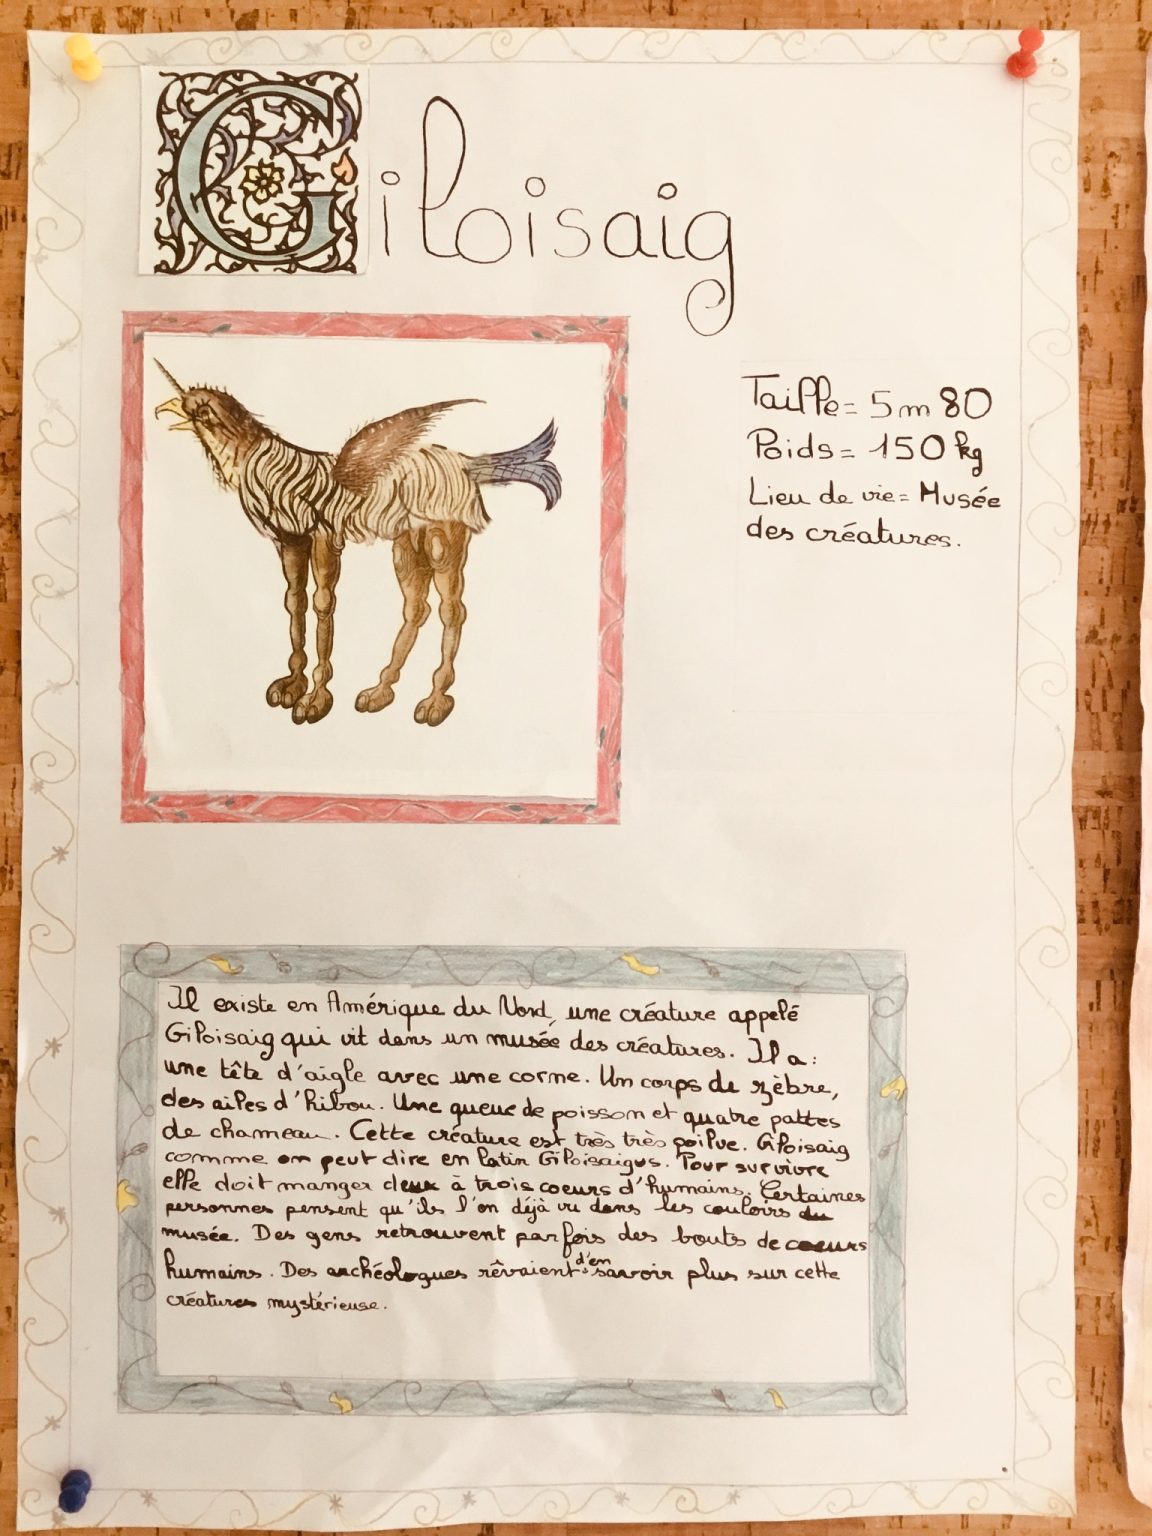 Giloisaig
Taille = 5m80
Poids = 150 kg
Lieu de vie = Musée
des créatures.
Il existe en Amérique du Nord, une créature appelé
Giloisaig qui vit dans un musée des créatures. Il a :
une tête d'aigle avec une corne. Un corps de zèbre,
des ailes d'hibou. Une queue de poisson et quatre pattes
de chameau. Cette créature est très très poilue. Giloisaig
comme on peut dire en latin Giloisaigus. Pour survivre
elle doit manger deux à trois coeurs d'humains. Certaines
personnes pensent qu'ils l'on déjà vu dans les couloirs du
musée. Des gens retrouvent parfois des bouts de coeurs
humains. Des archéologues rêvaient d'en savoir plus sur cette
créatures mystérieuse.